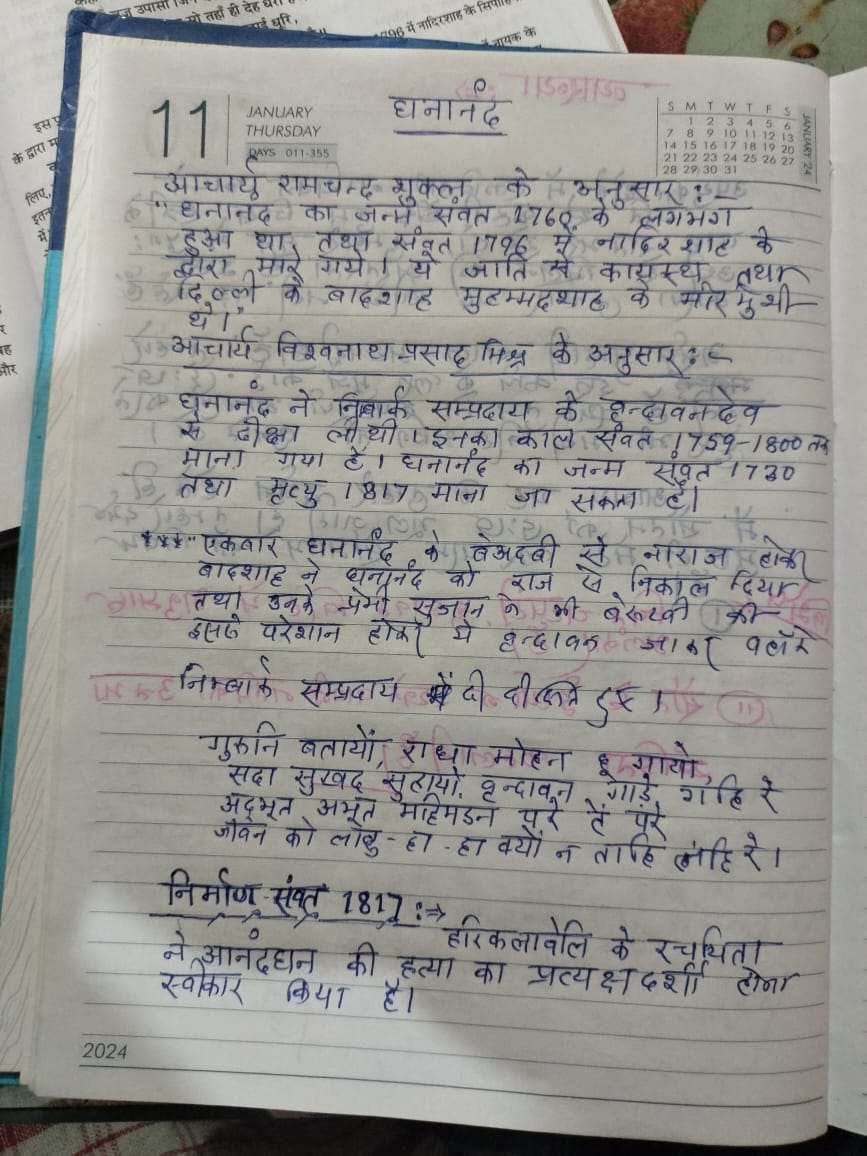 11
JANUARY
THURSDAY
DAYS 011-355
घनानंद
S M T W T F S
1 2 3 4 5 6
7 8 9 10 11 12 13
14 15 16 17 18 19 20
21 22 23 24 25 26 27
28 29 30 31
JANUARY 24
आचार्य रामचन्द्र शुक्ल के अनुसार :-
"घनानंद का जन्म संवत 1760 के लगभग
हुआ था, तथा संवत 1796 में नादिर शाह के
द्वारा मारे गये। ये जाति से कायस्थ तथा
दिल्ली के बादशाह मुहम्मदशाह के मीर मुंशी
थे।"
आचार्य विश्वनाथ प्रसाद मिश्र के अनुसार :-
घनानंद ने निंबार्क सम्प्रदाय के वृन्दावनदेव
से दीक्षा ली थी। इनका काल संवत 1759-1800 तक
माना गया है। घनानंद का जन्म संवत 1730
तथा मृत्यु 1817 माना जा सकता है।
*** "एकबार घनानंद के बेअदबी से नाराज होकर
बादशाह ने घनानंद को राज से निकाल दिया
तथा उनके प्रेमी सुजान ने भी बेरूखी की
इससे परेशान होकर ये वृन्दावन जाकर वहाँ से
निम्बार्क सम्प्रदाय में दी दीक्षित हुए।
गुरुनि बतायों, राधा मोहन हू गायो
सदा सुखद सुहायो, वृन्दावन गाढ़े गहि रे
अद्भूत अभूत महिमंडन परे तें परे
जीवन को लाहु - हा - हा क्यों न ताहि लहि रे।
निर्माण संवत 1817 :⇒
हरिकलावेलि के रचयिता
ने आनंदघन की हत्या का प्रत्यक्षदर्शी होना
स्वीकार किया है।
2024